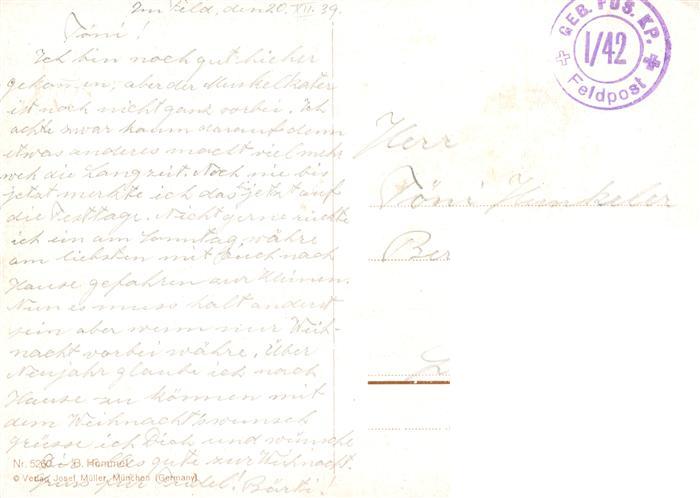 Im Feld, den 20. XII. 39.
Töni!
Ich bin noch gut hieher
gekommen, aber der Muskelkater
ist noch nicht ganz vorbei. Ich
achte zwar kaum darauf denn
etwas anderes macht viel mehr
weh die Langzeit. Noch nie bis
jetzt merkte ich das jetzt auf
die Festtage. Nicht gerne rückte
ich ein am Sonntag, währe
am liebsten mit Euch nach
Hause gefahren zur Kleinen.
Nun es muss halt anderst
sein aber wenn nur Weih-
nacht vorbei währe. Über
Neujahr glaube ich nach
Hause zu können mit
dem Weihnacht'swunsch
grüsse ich Dich und wünsche
alles gute zur Weihnacht.
Bärti!
Nr. 5260 B. Hummel
© Verlag Josef Müller, München (Germany)
GEB. FÜS. KP.
I/42
Feldpost
Herr
Töni Hunkeler
Ber